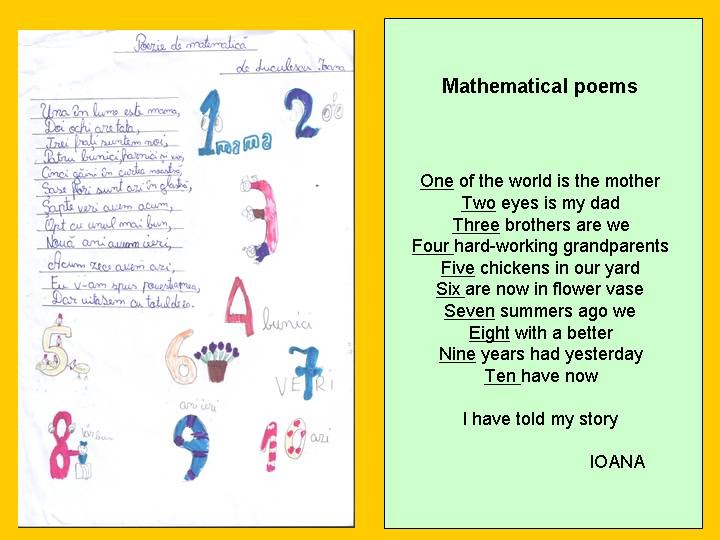 Poezie de matematică
de Luculescu Ioana
Una în lume este mama,
Doi ochi are tata,
Trei frați suntem noi,
Patru bunici, harnici și
Cinci găini în curtea noastră,
Șase flori sunt azi în glastră,
Șapte veri avem acum,
Opt cu unul mai bun,
Nouă ani avem ieri,
Acum zece avem azi,
Eu v-am spus povestea mea,
Dar uitasem cu totul de
1 mama
2
3
4 bunici
5
6
7
VERI
8
ani ieri
9
10 azi
Mathematical poems
One of the world is the mother
Two eyes is my dad
Three brothers are we
Four hard-working grandparents
Five chickens in our yard
Six are now in flower vase
Seven summers ago we
Eight with a better
Nine years had yesterday
Ten have now
I have told my story
IOANA